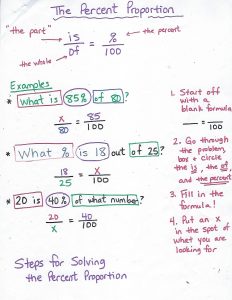 The Percent Proportion
"the part" is / of = % / 100 the percent
the whole
Examples
* What is 85% of 80?
x / 80 = 85 / 100
* What % is 18 out of 25?
18 / 25 = x / 100
* 20 is 40% of what number?
20 / x = 40 / 100
Steps for Solving
the Percent Proportion
1. Start off
with a
blank formula
__ = __
2. Go through
the problem,
box + circle
the is, the of,
and the percent
3. Fill in the
formula!
4. Put an x
in the spot of
what you are
looking for